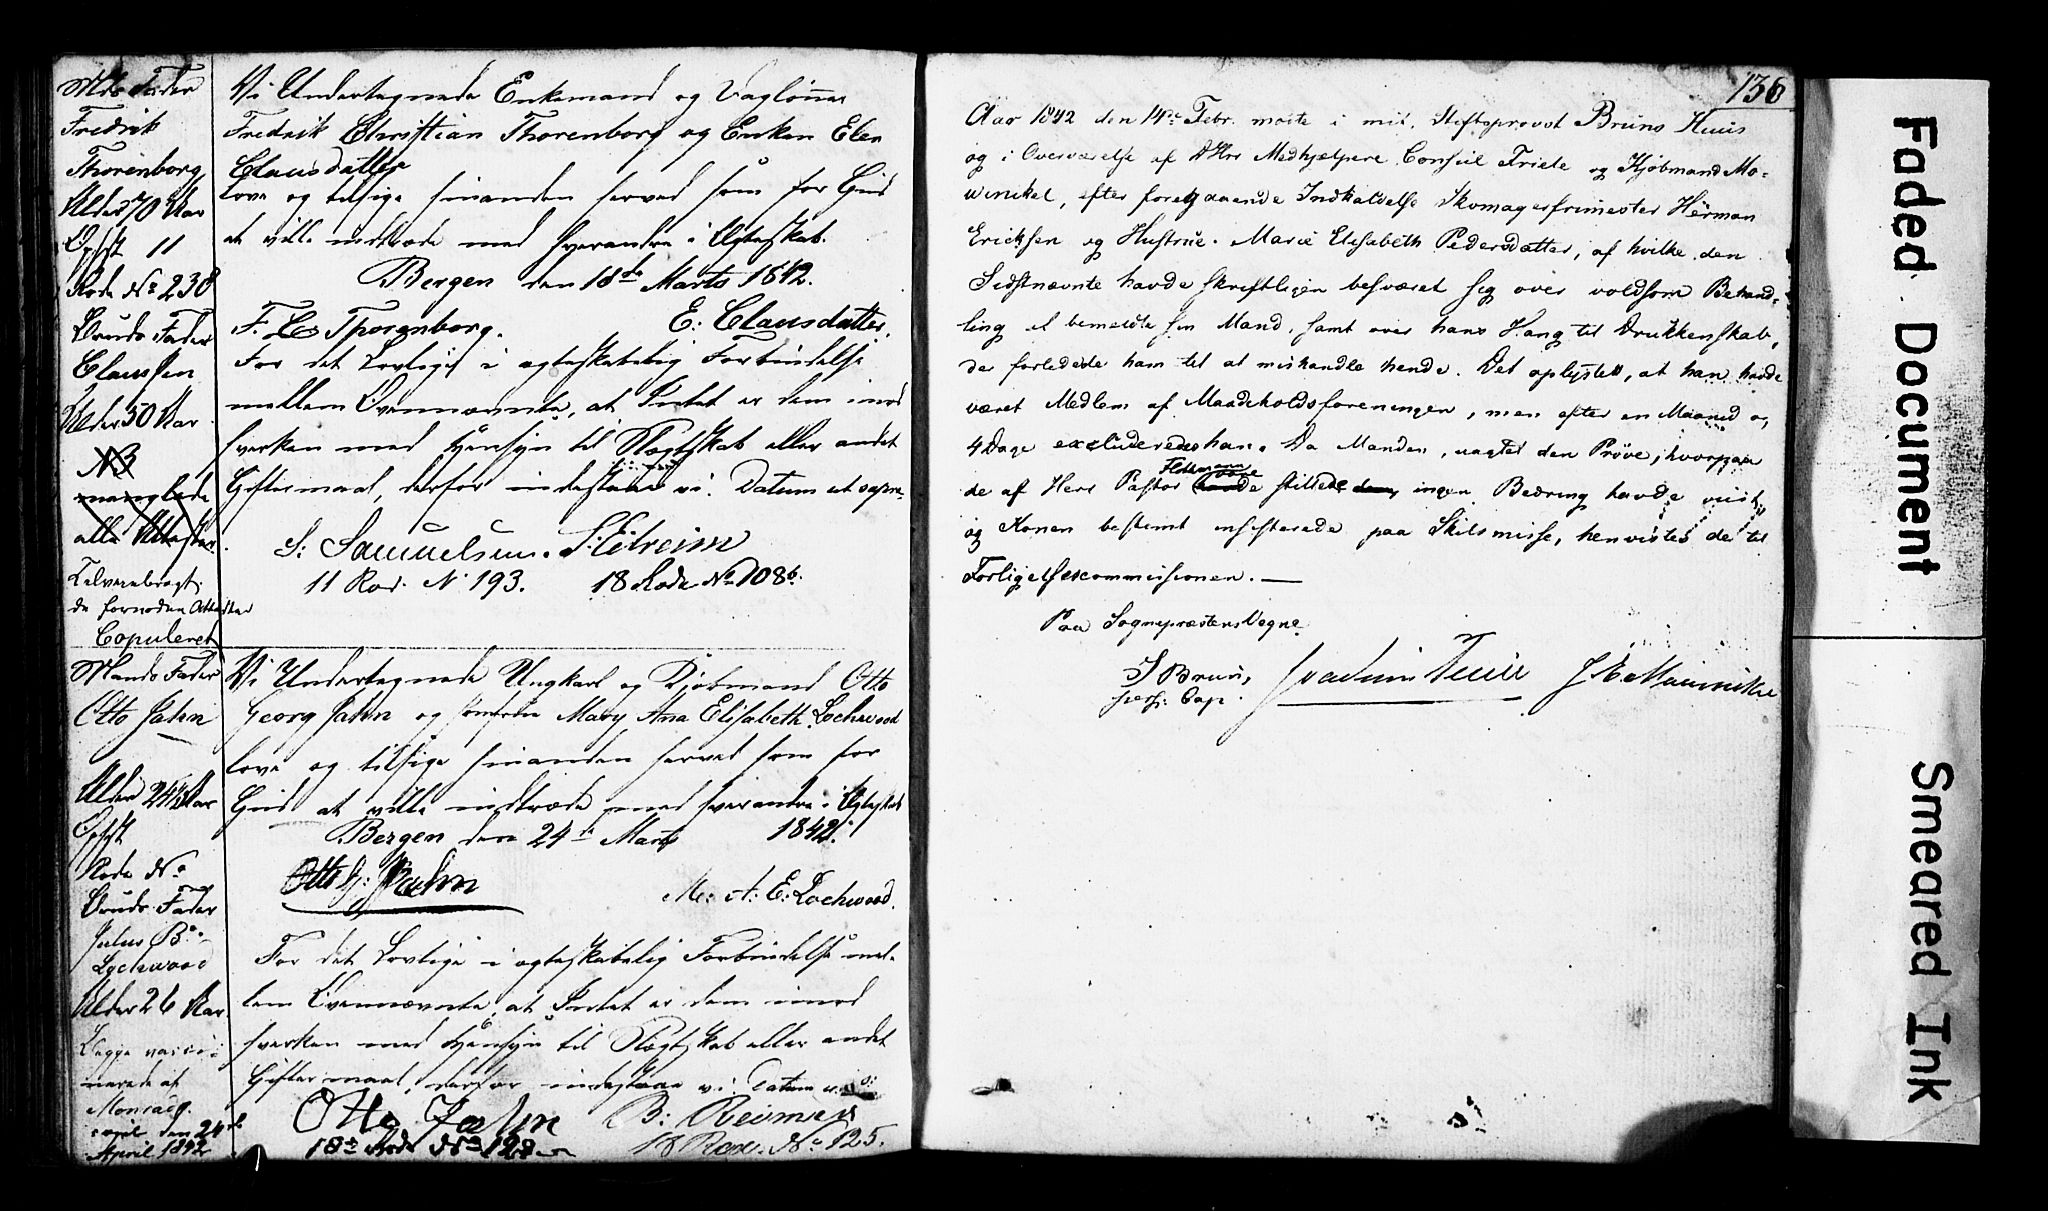 Mds Fader
Fredrik
Thorenborg,
Alder 70 Aar
Opfst 11
Rode No 238
Bruds Fader
Claussen
Alder 50 Aar
NB
manglede
alle Attester.
Tilveiebragt
de fornødne Attester
Copuleret
Vi Undertegnede Enkemand og Daglønner
Fredrik Christian Thorenborg og Enken Elen
Clausdatter
love og tilsige hinanden herved som for Gud
at ville indtræde med hverandre i Ægteskab.
Bergen den 18de Marts 1842.
F. C. Thorenborg. E: Clausdatter.
For det Lovlige i ægteskabelig Forbindelse
mellem Ovennævnte, at Intet er dem imod
hverken med Hensyn til Slægtskab eller andet
Giftermaal, derfor indestaae vi. Datum ut supra.
S: Samuelsen. S: Eitreim
11 Rod. N 193. 18 Rode No 108b.
Mands Fader
Otto Jahn
Alder 24½ Aar
Opfst
Rode No
Bruds Fader
Julus B.
Lochwood
Alder 26 Aar.
Begge vacci-
nerede af
Monrad
den 24de
April 1842
Vi Undertegnede Ungkarl og Kjøbmand Otto
Georg Jahn og Jomfrue Mary Ana Elisabeth Lochwood
love og tilsige hinanden herved som for
Gud at ville indtræde med hverandre i Ægteskab
Bergen den 24de Marts 1842.
Otto G: Jahn M: A: E: Lochwood.
For det Lovlige i ægteskabelig Forbindelse mel-
lem Ovennævnte, at Intet er dem imod
hverken med Hensyn til Slægtskab eller andet
Giftermaal, derfor indestaae vi Datum u: s:
Otto Jahn B: Reimers
18de Rode No 128 18 Rod. No 125.
136
Aar 1842 den 14de Febr. mødte i mit, Stiftsprovst Bruns Huus
og i Overværelse af DHrr Medhjælpere Consul Friele og Kjøbmand Mo-
winckel, efter foregaaende Indkaldelse Skomagerfrimester Herman
Ericksen og Hustrue Marie Elisabeth Pedersdatter, af hvilke den
Sidstnævnte havde skriftligen besværet sig over voldsom Behand-
ling af bemeldte sin Mand, samt over hans Hang til Drukkenskab,
der forledede ham til at mishandle hende. Det oplystes, at han havde
været Medlem af Maadeholdsforeningen, men efter en Maaned og
4 Dage excluderedes han. Da Manden, uagtet den Prøve, hvorpaa
de af Herr Pastor havde stillede dem, ingen Bedring havde viist,
og Konen bestemt insisterede paa Skilsmisse, henvistes de til
Forligelsescommissionen. —
Paa Sognepræstens Vegne
S Brun, Joachim Friele J E Mowinckel
pers: Cap.
Faded Document
Smeared Ink